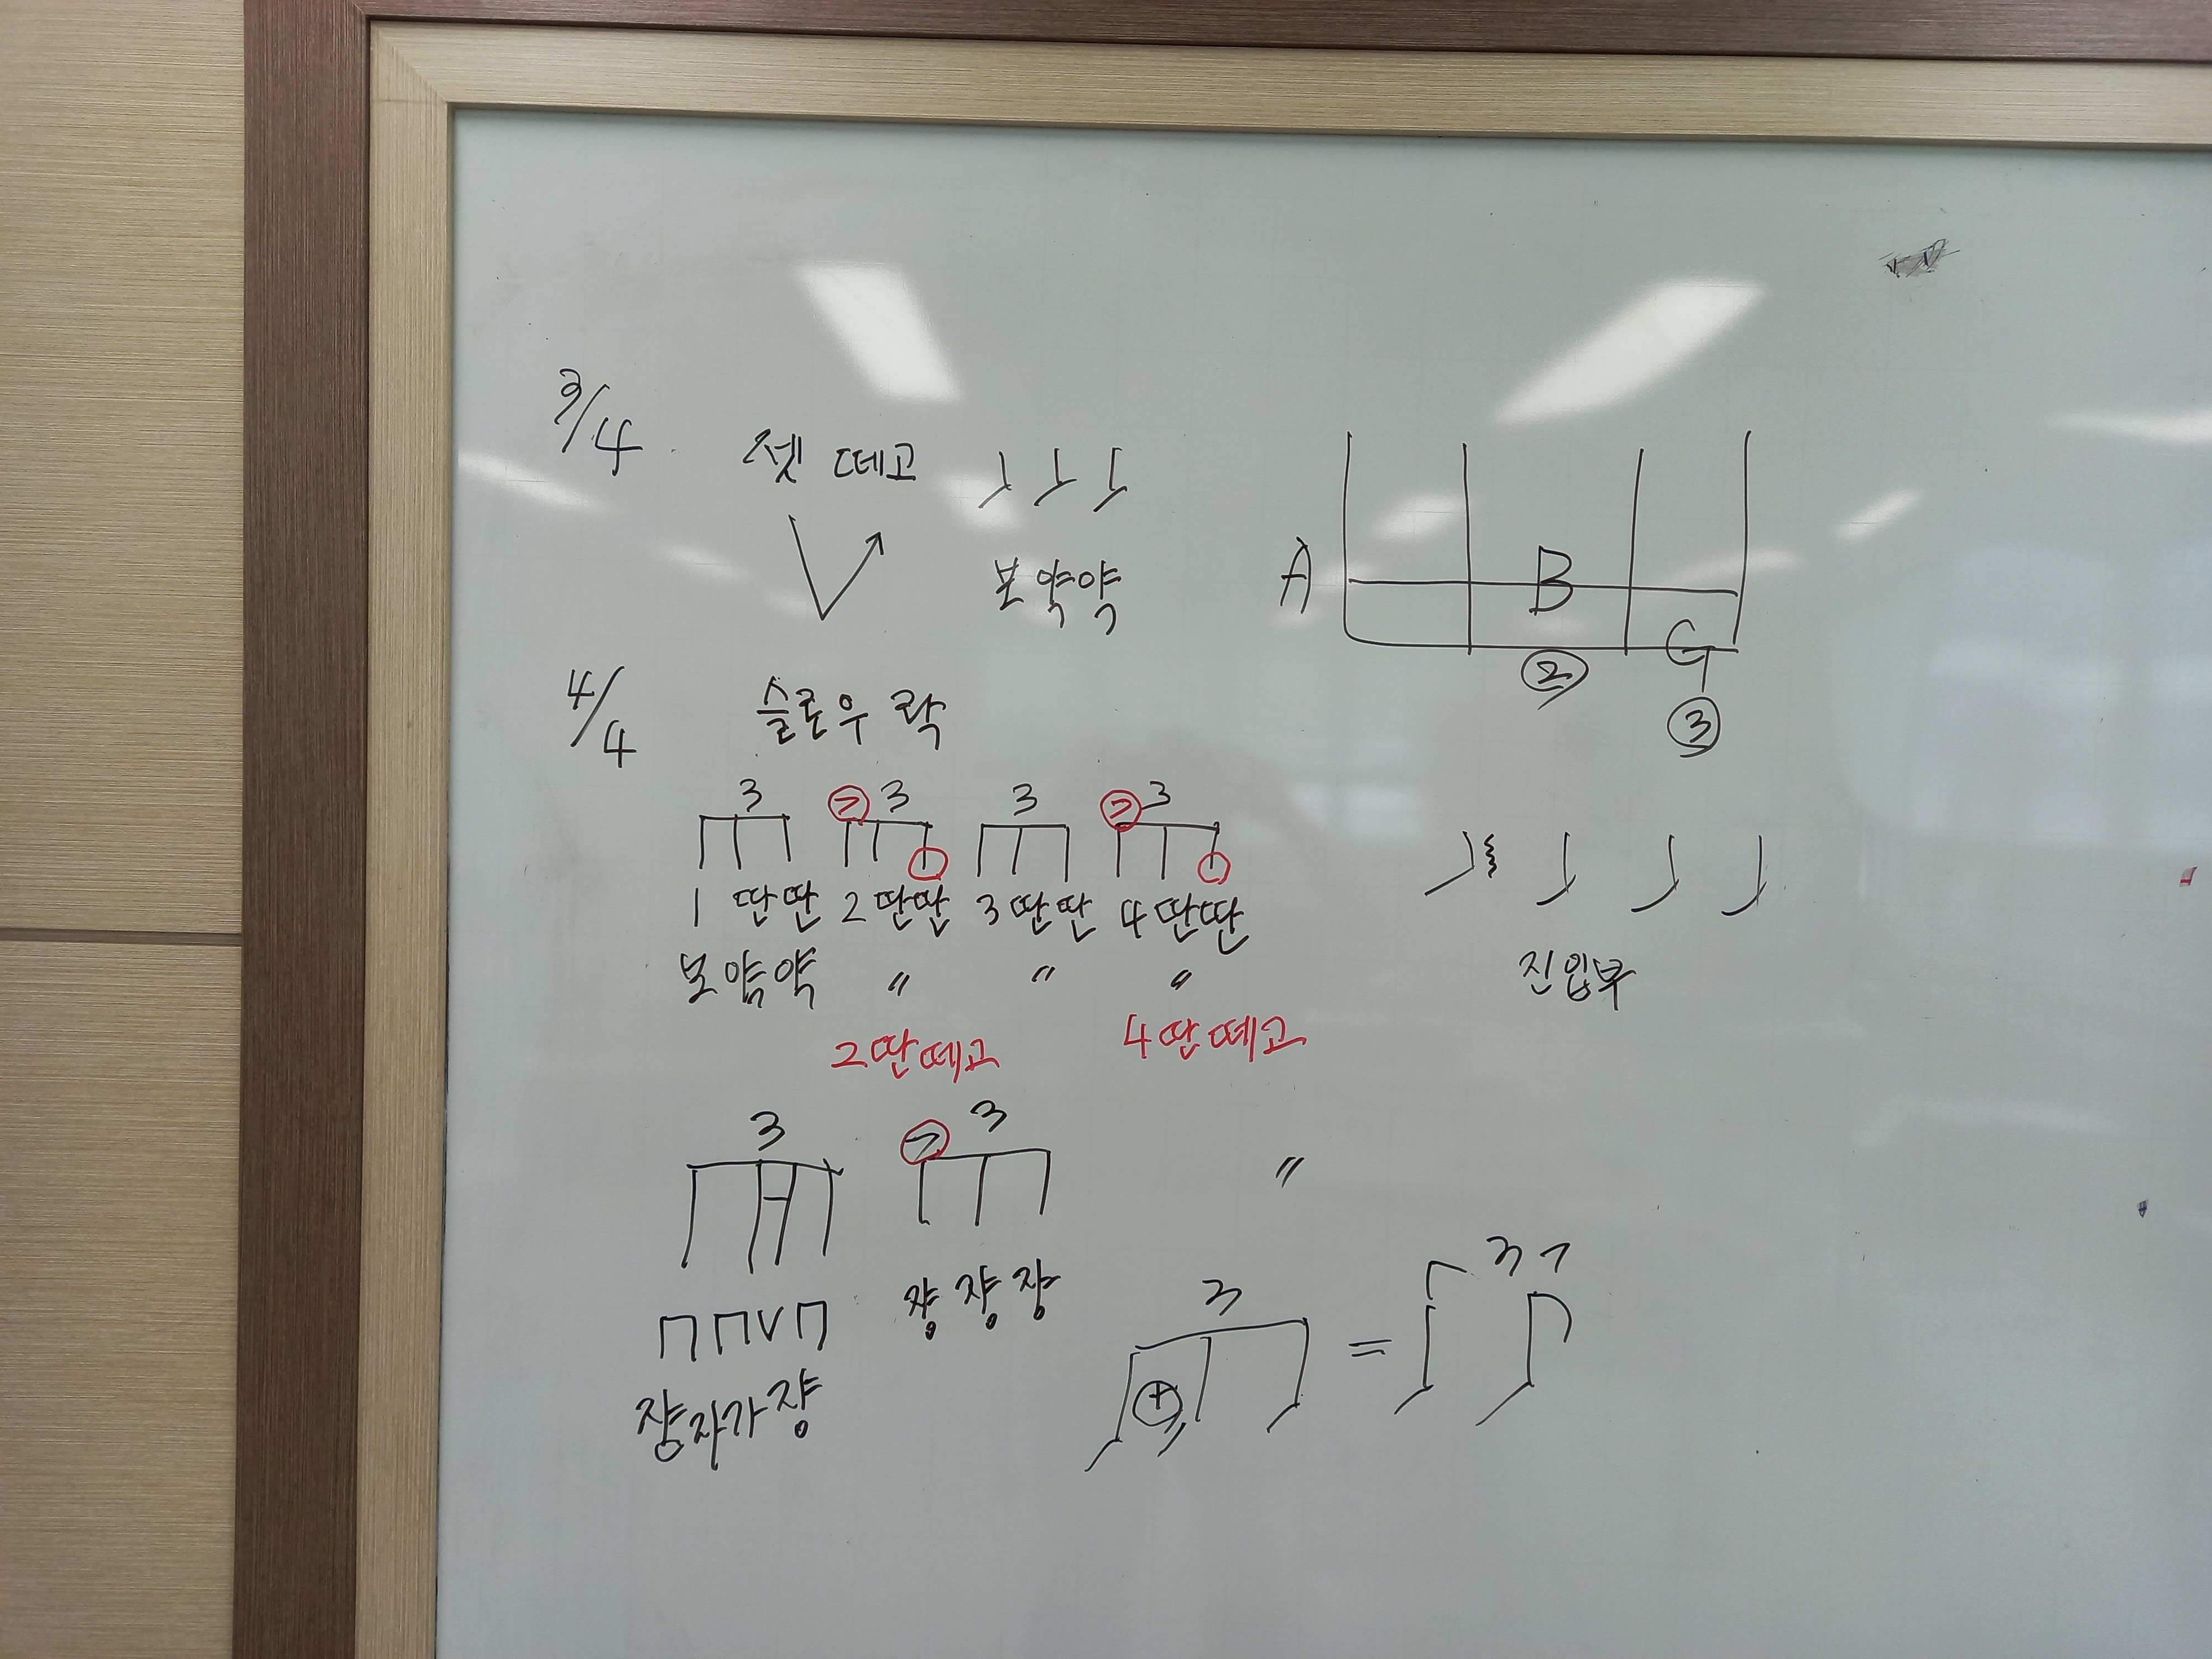 3/4 셋 떼고
보 약약
A B G
② ③
4/4 슬로우 락
3 > 3 3 > 3
1 딴딴 2 딴딴 3 딴딴 4 딴딴
보 얌약 〃 〃 〃
진입부
2딴떼고 4딴떼고
3 > 3 〃
쟝 쟝 쟝
쟝자가쟝
3 = 3